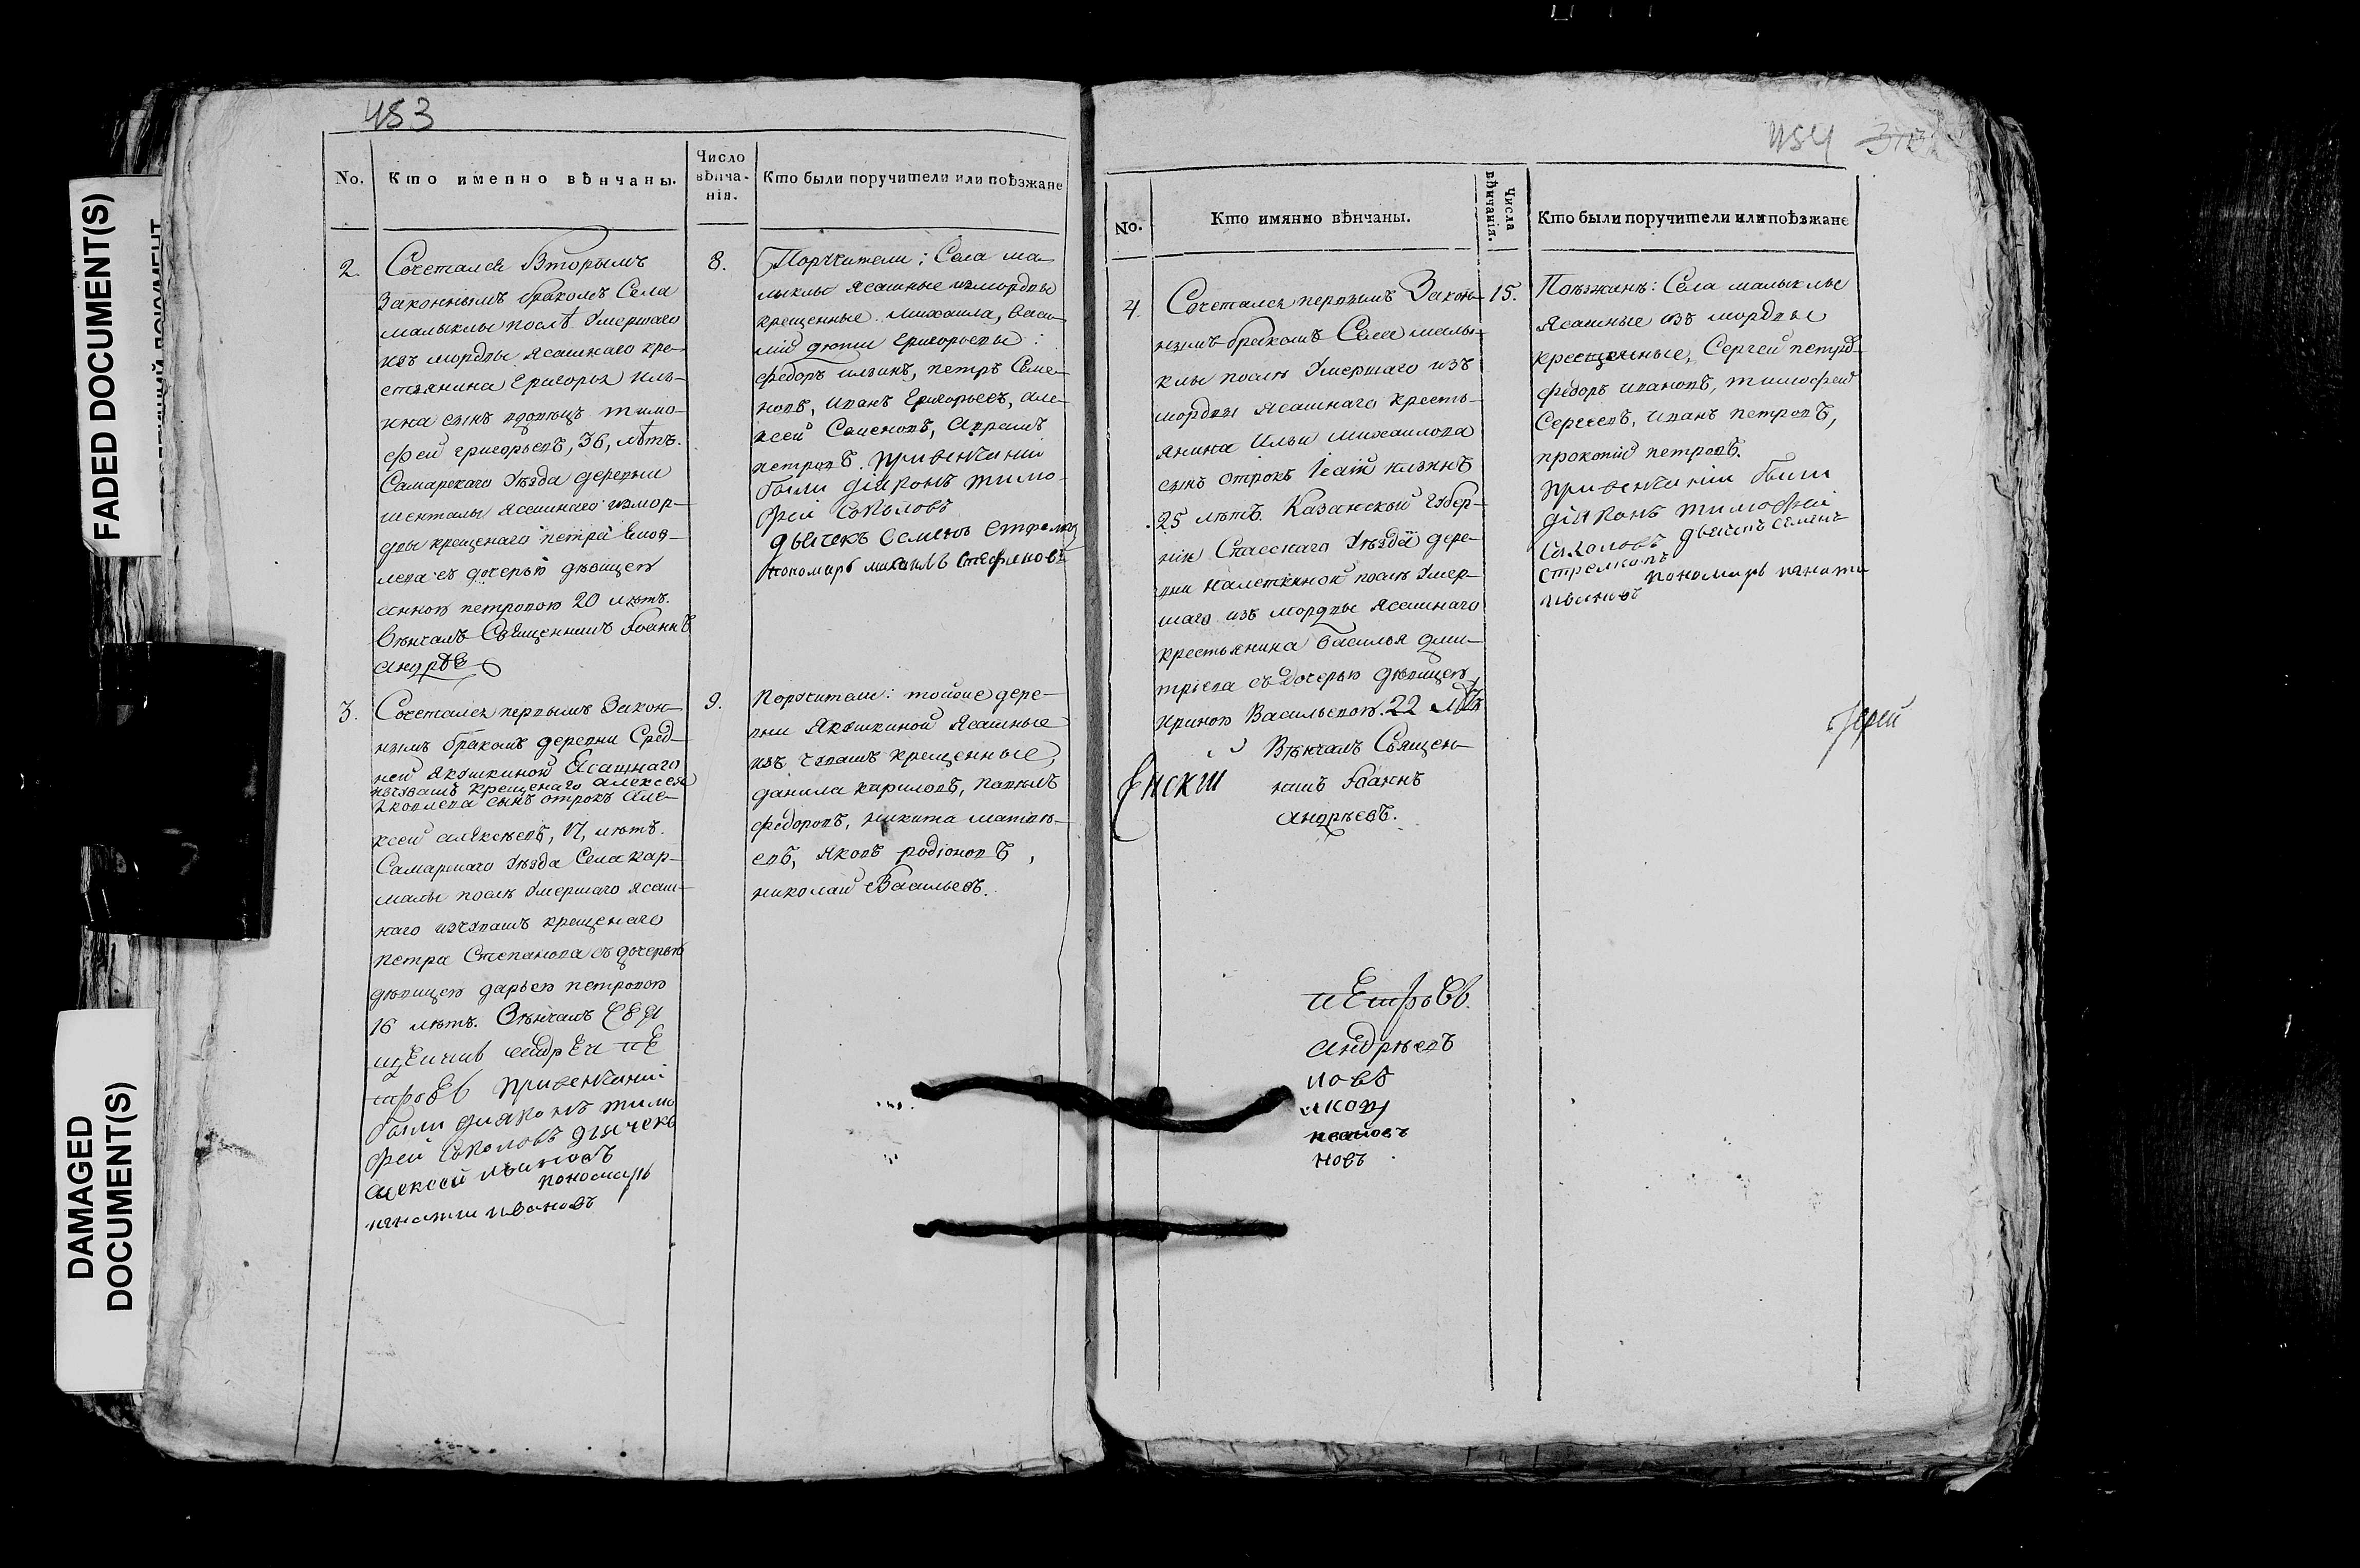 FADED DOCUMENT(S)
DAMAGED
DOCUMENT(S)
453
No.
Кто именно вѣнчаны.
Число
вѣнча-
нія.
Кто были поручители или поѣзжане
2.
Сочетался Вторымъ
Законнымъ бракомъ Села
малыклы послѣ Умершаго
изъ мордвы ясашнаго кре-
стьянина Григорья Иль-
ина сынъ вдовецъ тимо-
фей григорьевъ, 36, лѣтъ.
Самарскаго Уѣзда деревни
шенталы ясашнаго измор-
двы крещенаго петра
съ дочерью дѣвицею
анною петровою 20 лѣтъ.
Вѣнчалъ Священникъ Іоаннъ
андрѣевъ
8.
Поручители: Села ма-
лыклы ясашные измордвы
крещенные михаила, васи-
лій дѣти григорьевы:
федоръ ильинъ, петръ Семе-
новъ, иванъ григорьевъ, але-
ксей Семеновъ, аврамъ
петровъ. при венчаніи
были діяконъ тимо-
фей Соколовъ
дьячекъ Семенъ Стрелко
пономарь михаилъ Стефановъ
3.
Сочетался первымъ Закон-
нымъ бракомъ деревни Сред-
ней якушкиной ясашнаго
изчувашъ крещенаго алексея
яковлева сынъ отрокъ але-
ксей алексѣевъ, 17, лѣтъ.
Самарскаго Уѣзда Села кар-
малы послѣ Умершаго ясаш-
наго изчувашъ крещенаго
петра Степанова съ дочерью
дѣвицею дарьею петровою
16 лѣтъ. Вѣнчалъ СВЯ
щенникъ андрей пе
тровъ при венчаніи
были диаконъ тимо
фей Соколовъ дьячекъ
алексей ивановъ
пономарь
игнатии ивановъ
9.
Поручители: тойже дере-
вни якушкиной ясашные
изъ чувашъ крещенные,
данила кириловъ, павелъ
федоровъ, никита матвѣ-
евъ, яковъ родіоновъ,
николай Васильевъ.
454
No.
Кто имянно вѣнчаны.
Числа
вѣнчанія.
Кто были поручители или поѣзжане
4.
Сочетался первымъ Закон-
нымъ бракомъ Села малы-
клы послѣ Умершаго изъ
мордвы ясашнаго кресть-
янина Ильи михаилова
сынъ отрокъ Ісаій ильинъ
25 лѣтъ. Казанской губер-
ніи Спасскаго Уѣзда дере-
вни налеткиной послѣ Умер-
шаго изъ мордвы ясашнаго
крестьянина василья дми-
тріева съ дочерью дѣвицею
ириною Васильевою. 22 лѣтъ
Вѣнчалъ Священ-
никъ Іоаннъ
андрѣевъ.
15.
Поѣзжанѣ: Села малыклы
ясашные изъ мордвы
крещенные, Сергей петров
федоръ ивановъ, тимофей
Сергеевъ, иванъ петровъ,
прокопій петровъ.
при венчаніи были
діяконъ тимофей
Соколовъ дьячекъ Семенъ
стрелковъ
пономарь игнати
ивановъ
Іерей
енскш
петровъ.
андрѣевъ
ловъ
лкову
новъ